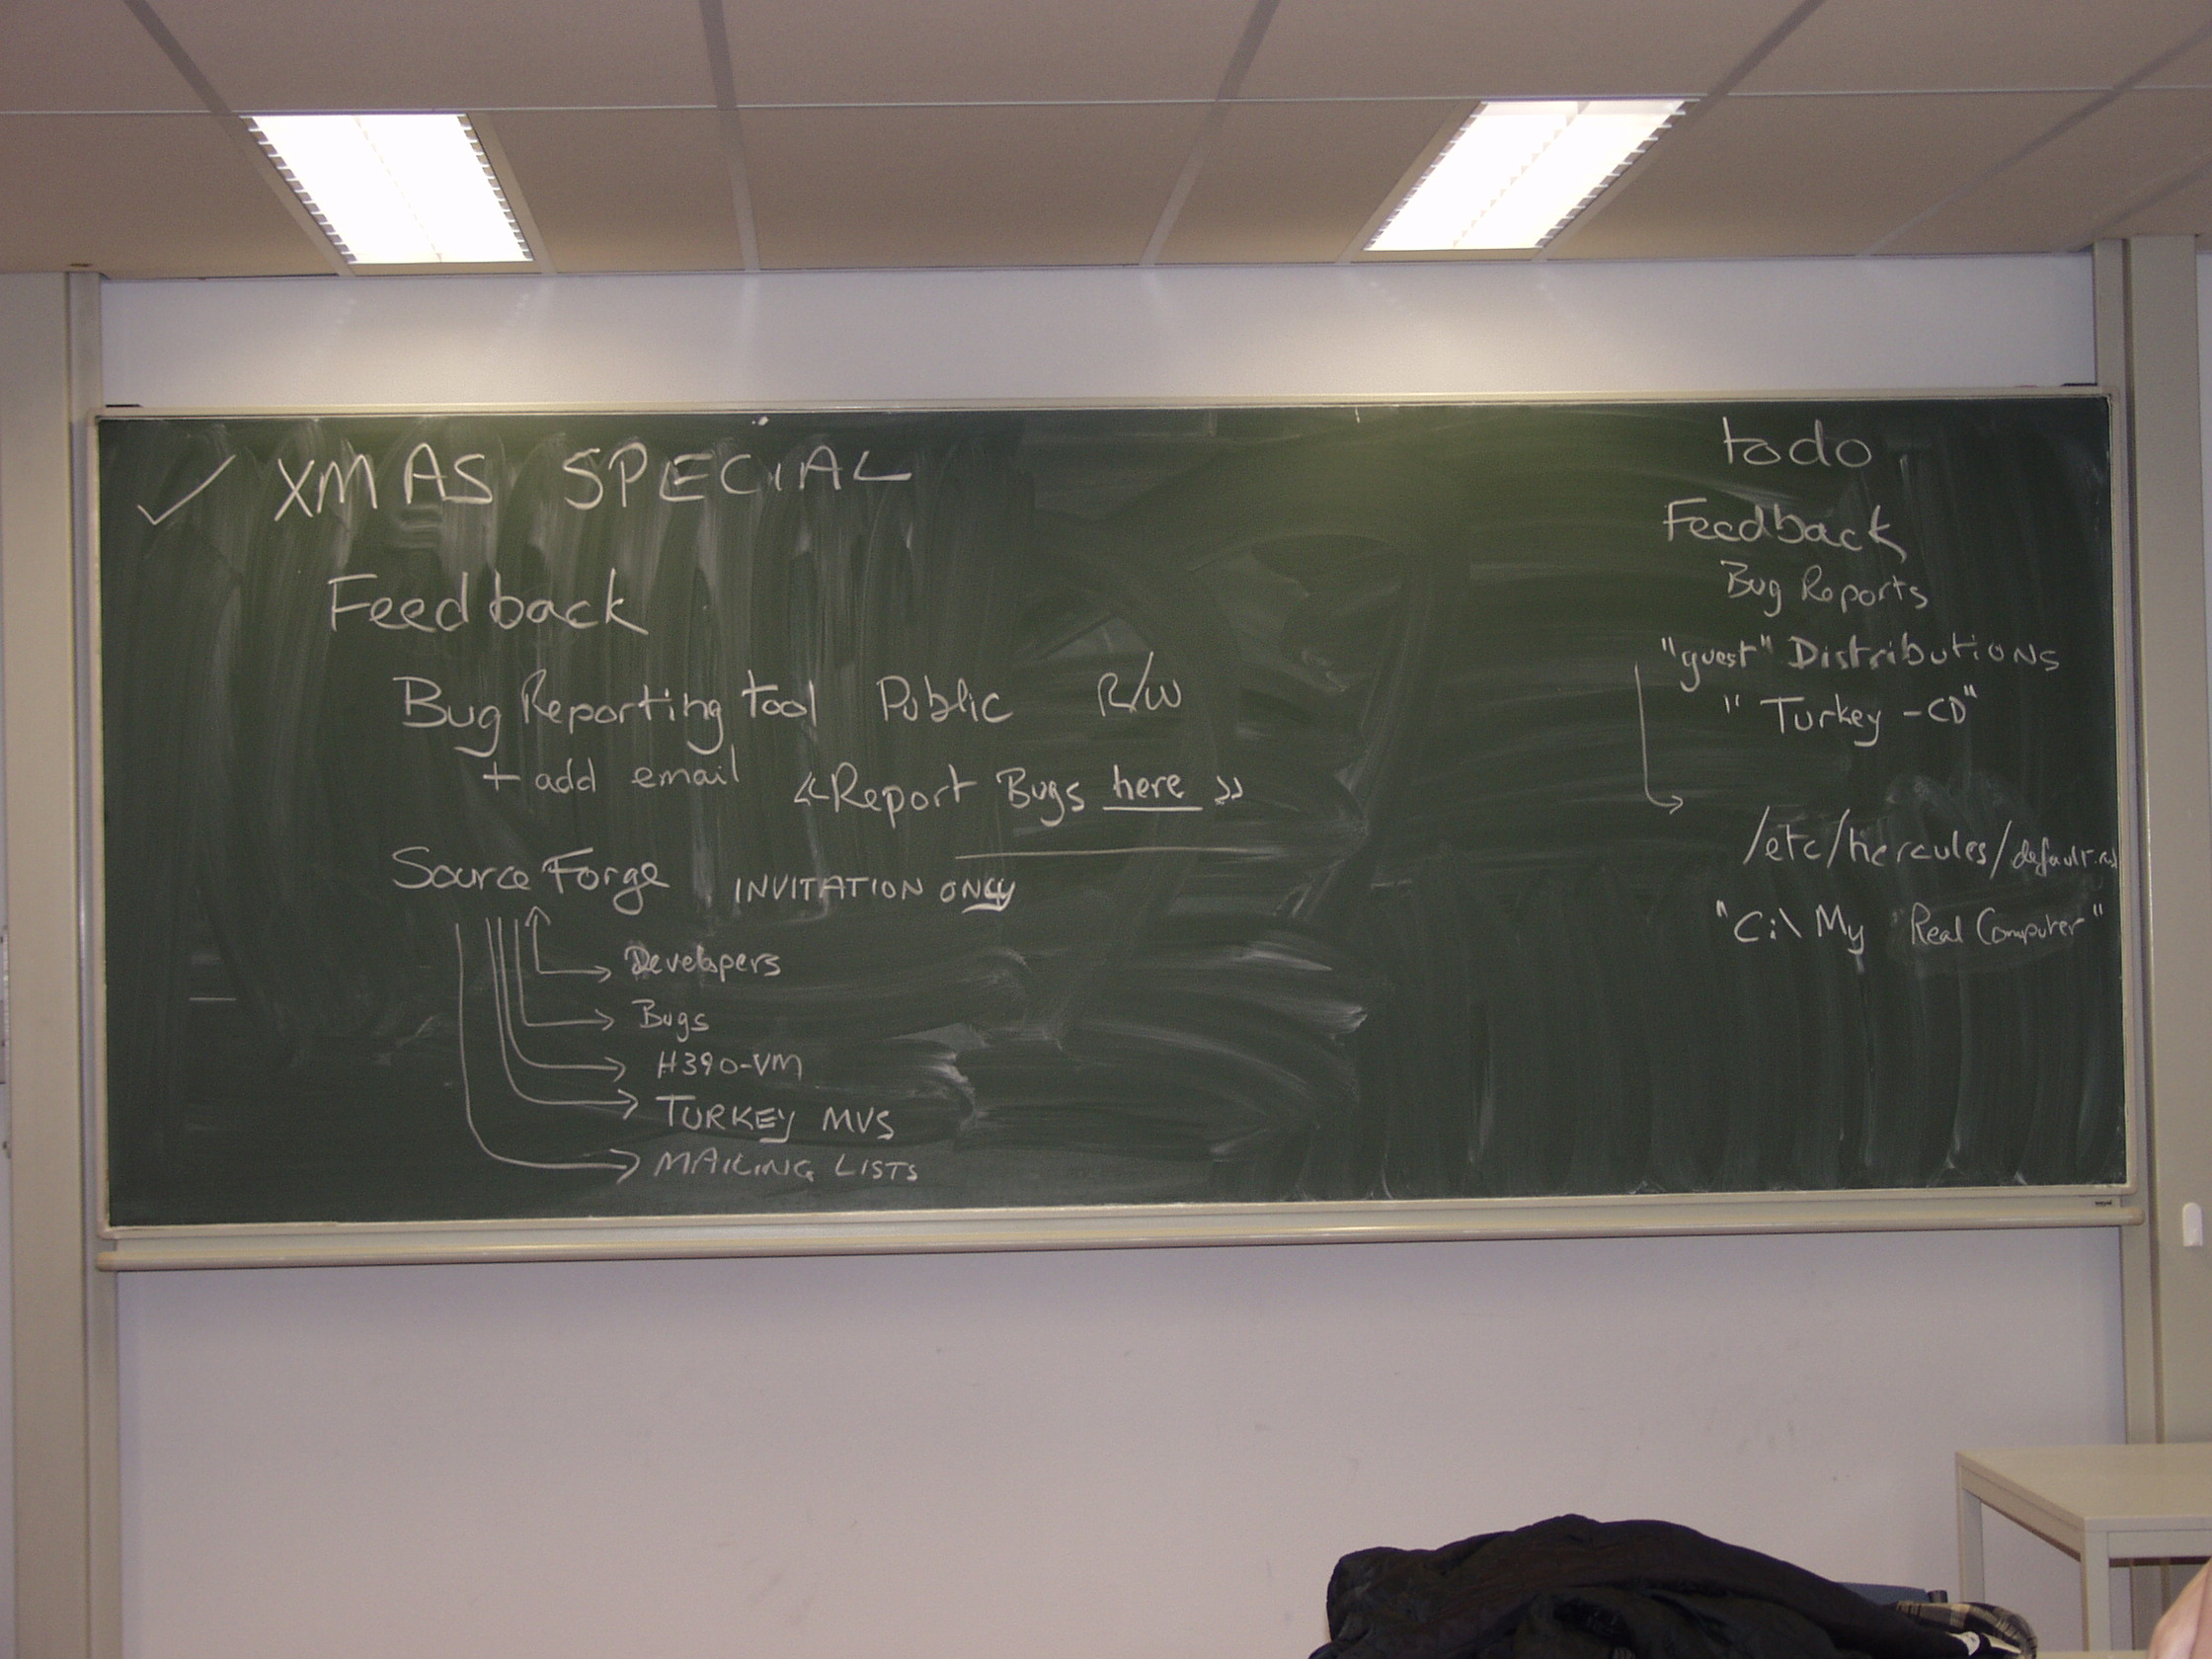 ✓ XMAS SPECIAL
Feedback
Bug Reporting tool Public R/W
+ add email «Report Bugs here»
Source Forge INVITATION ONLY
Developers
Bugs
H390-VM
TURKEY MVS
MAILING LISTS
todo
Feedback
Bug Reports
"guest" Distributions
"Turkey-CD"
/etc/hercules/
"C:\My Real Computer"